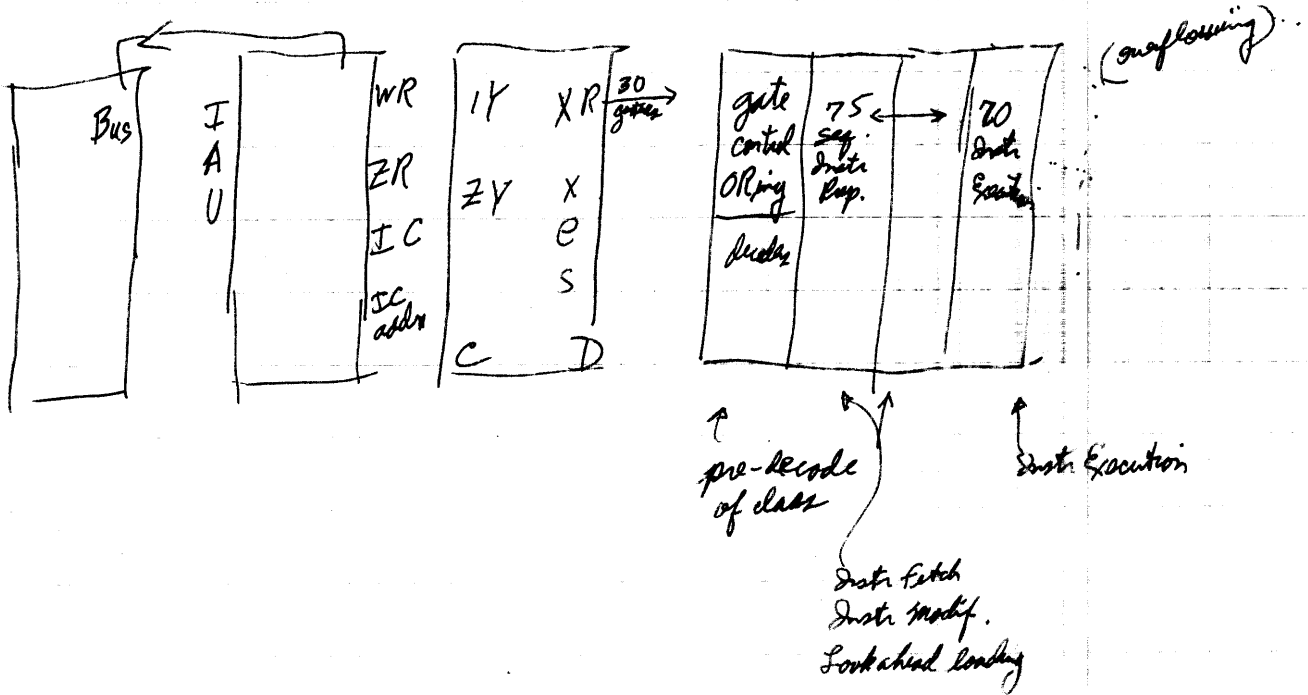 (overflowing)..
Bus
I
A
U
WR
ZR
IC
IC
addr
1Y
ZY
C
XR
X
e
s
D
30
gates
gate
control
ORing
decodes
75
seq.
Instr
Prep.
70
Instr
Execution
pre-decode
of class
Instr Fetch
Instr Modif.
Look ahead loading
Instr Execution